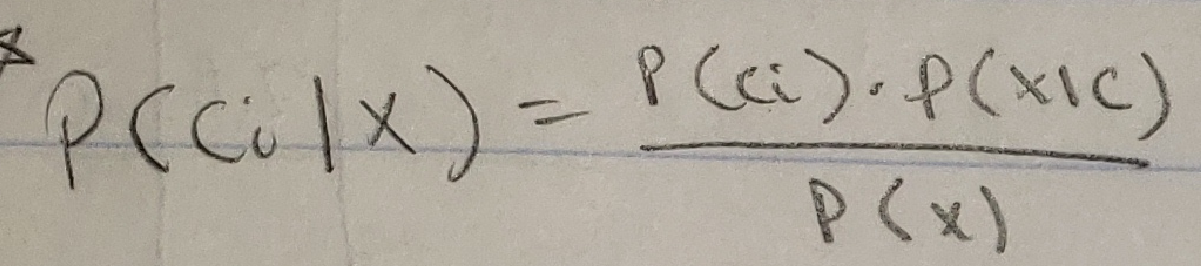 * P(Ci|X) = P(Ci)·P(X|C)
P(X)